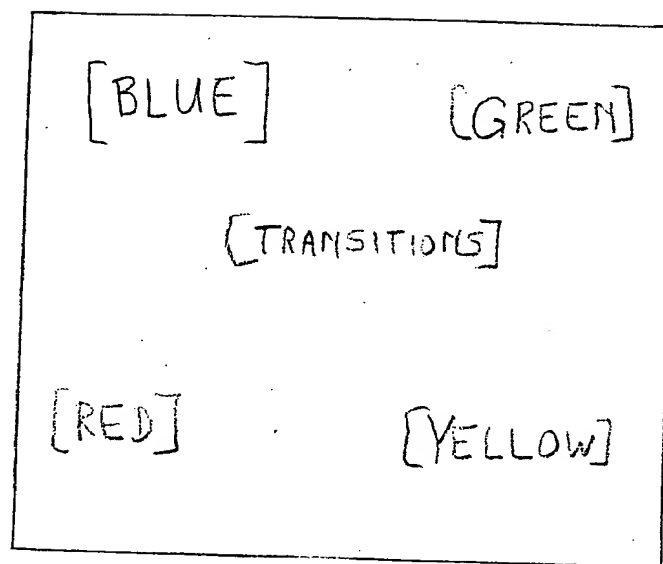 [BLUE]
[GREEN]
[TRANSITIONS]
[RED]
[YELLOW]